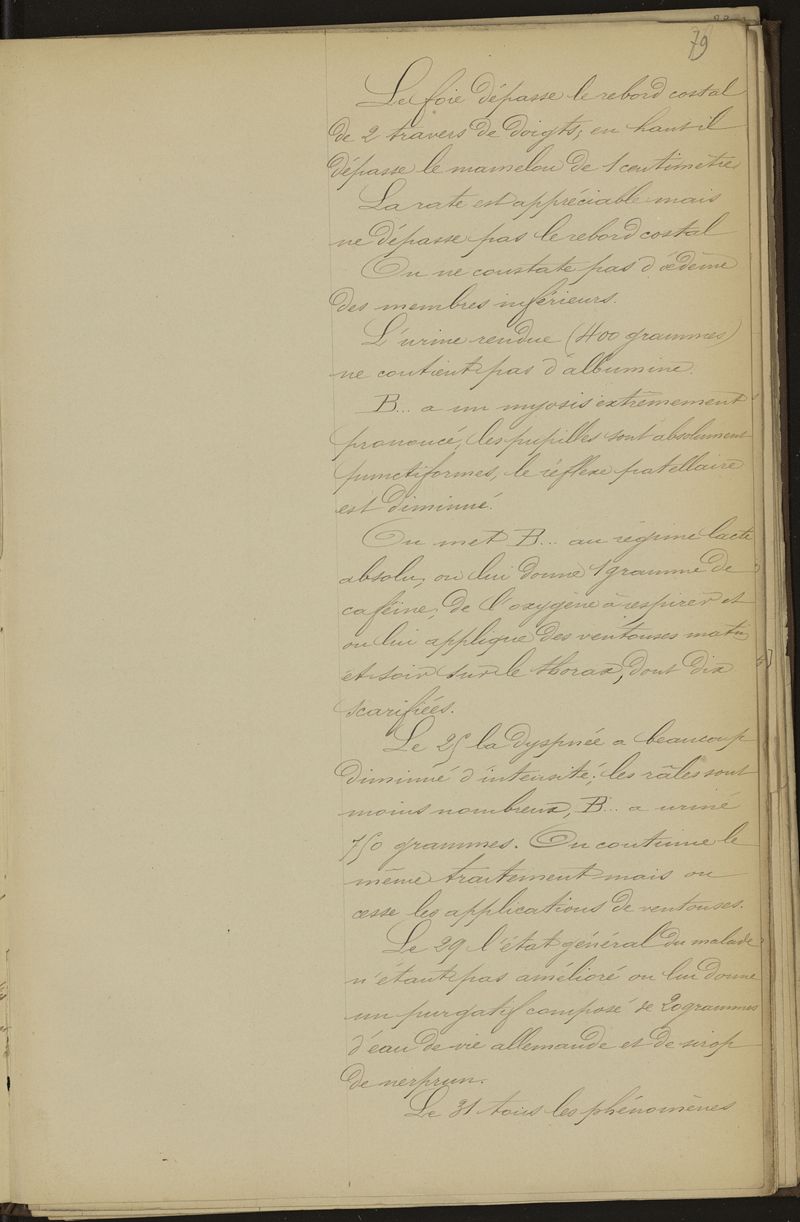 79
Le foie dépasse le rebord costal
de 2 travers de doigts; en haut il
dépasse le mamelon de 1 centimètre
La rate est appréciable mais
ne dépasse pas le rebord costal
On ne constate pas d'œdème
des membres inférieurs.
L'urine rendue (400 grammes)
ne contient pas d'albumine.
B... a un myosis extrêmement
prononcé, les pupilles sont absolument
punctiformes, le réflexe patellaire
est diminué.
On met B... au régime lacté
absolu, on lui donne 1 gramme de
caféine, de l'oxygène à respirer et
on lui applique des ventouses matin
et soir sur le thorax, dont dix
scarifiées.
Le 25 la dyspnée a beaucoup
diminué d'intensité; les râles sont
moins nombreux, B... a uriné
750 grammes. On continue le
même traitement mais on
cesse les applications de ventouses.
Le 29 l'état général du malade
n'étant pas amélioré on lui donne
un purgatif composé de 20 grammes
d'eau de vie allemande et de sirop
de nerprun.
Le 31 tous les phénomènes